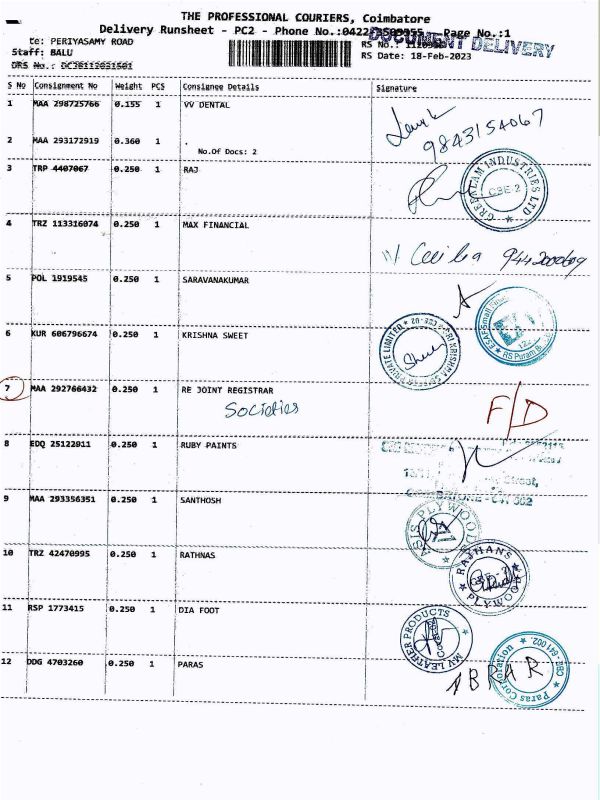 THE PROFESSIONAL COURIERS, Coimbatore
Delivery Runsheet - PC2 - Phone No.: Page No.:1
DOCUMENT DELIVERY
te: PERIYASAMY ROAD
RS No.:
Staff: BALU
RS Date: 18-Feb-2023
DRS No.:
S No Consignment No Weight PCS Consignee Details Signature
1 MAA 298725766 0.155 1 VV DENTAL
9843154067
2 MAA 293172919 0.360 1 .
No.Of Docs: 2
3 TRP 4407067 0.250 1 RAJ
GREENLAM INDUSTRIES LTD
CBE-2
4 TRZ 113316074 0.250 1 MAX FINANCIAL
5 POL 1919545 0.250 1 SARAVANAKUMAR
ESAF Small
RS Puram B
6 KUR 606796674 0.250 1 KRISHNA SWEET
PRIVATE LIMITED
SRI KRISHNA
7 MAA 292766432 0.250 1 RE JOINT REGISTRAR
Societies
F/D
8 EDQ 25122911 0.250 1 RUBY PAINTS
Street,
COIMBATORE - 641 002
9 MAA 293356351 0.250 1 SANTHOSH
PLYWOOD
10 TRZ 42470995 0.250 1 RATHNAS
RAJHANS PLYWOOD
11 RSP 1773415 0.250 1 DIA FOOT
MV LEATHER PRODUCTS
12 DDG 4703260 0.250 1 PARAS
ABRAR
Paras Corporation
CBE - 641 002.